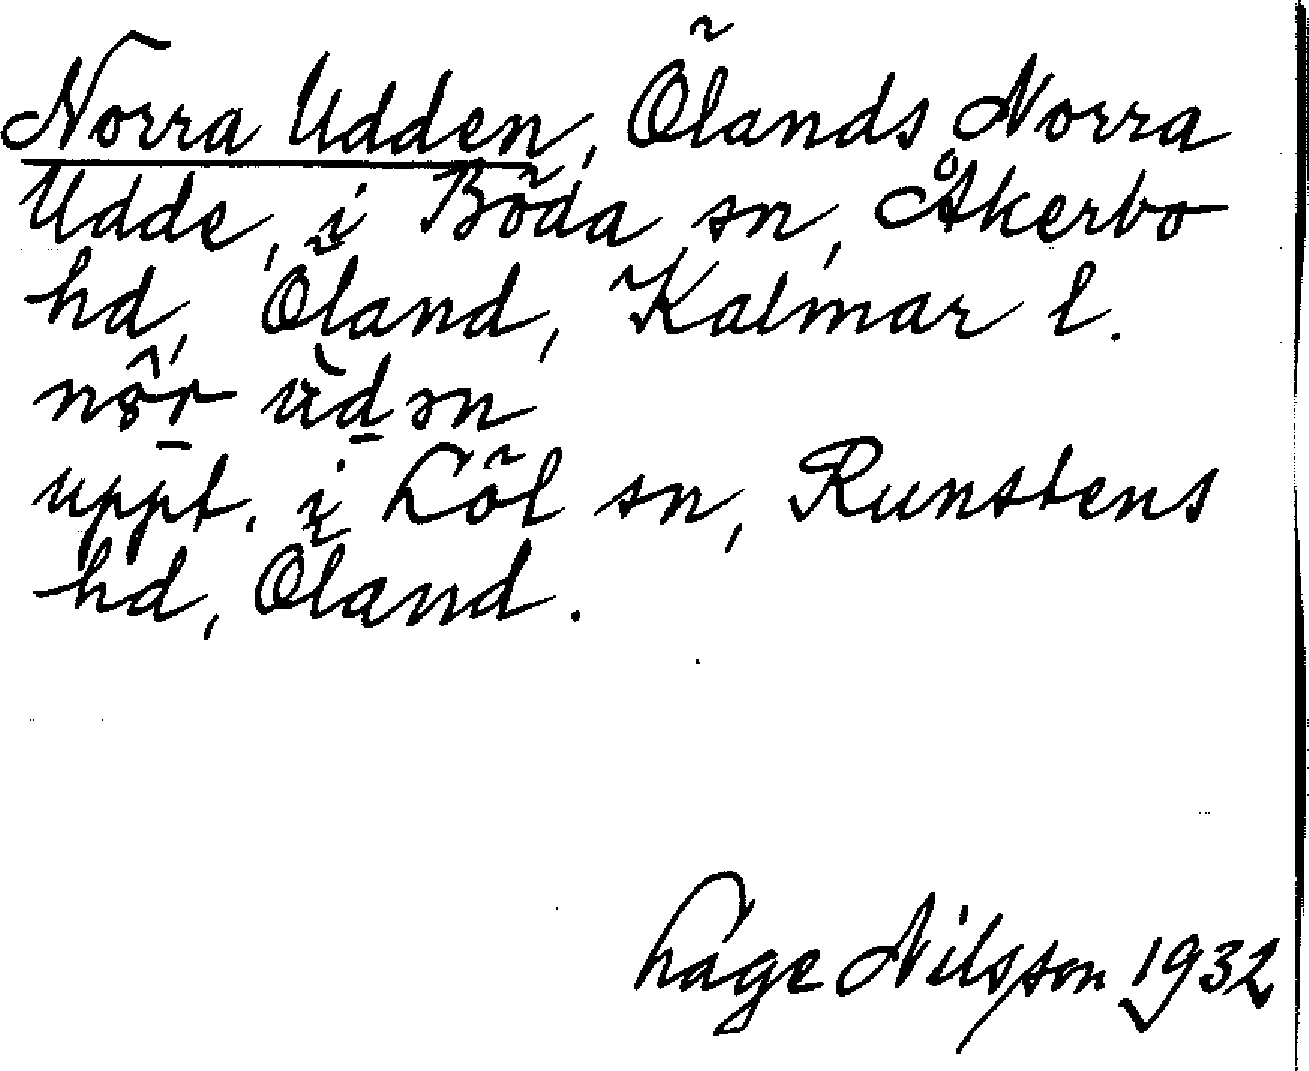 Norra Udden, Ölands Norra
Udde, i Böda sn, Åkerbo
hd, Öland, Kalmar l.
uppt. i Löl sn, Runstens
hd, Öland.
Lage Nilsson 1932